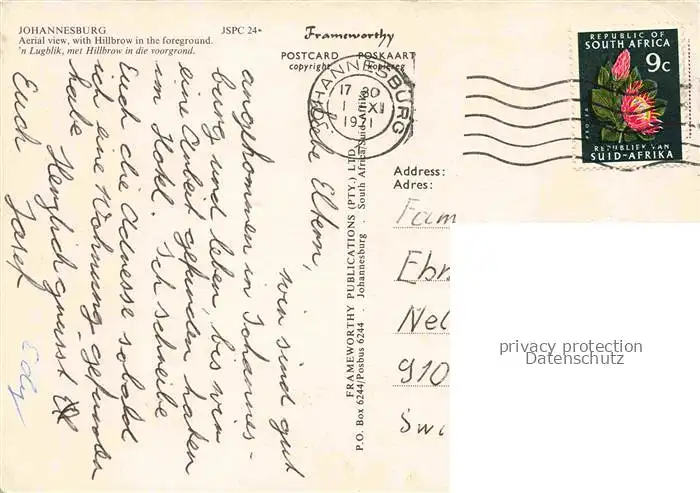 JOHANNESBURG
JSPC 24
Aerial view, with Hillbrow in the foreground.
'n Lugblik, met Hillbrow in die voorgrond.
Frameworthy
POSTCARD POSKAART
copyright kopiereg
JOHANNESBURG
17 30
1 XI
1971
REPUBLIC OF
SOUTH AFRICA
9c
PROTEA
REPUBLIEK VAN
SUID-AFRIKA
Liebe Eltern,
wir sind gut
angekommen in Johannes-
burg und leben, bis wir
eine Arbeit gefunden haben
im Hotel. Ich schreibe
Euch die Adresse sobald
ich eine Wohnung gefunden
habe. Herzlich grüsst
Euch Josef
Edy
FRAMEWORTHY PUBLICATIONS (PTY.) LTD.
P.O. Box 6244/Posbus 6244 . Johannesburg . South Africa/Suid-Afrika
Address:
Adres:
Fam
Ebn
Nel
910
Swi
privacy protection
Datenschutz